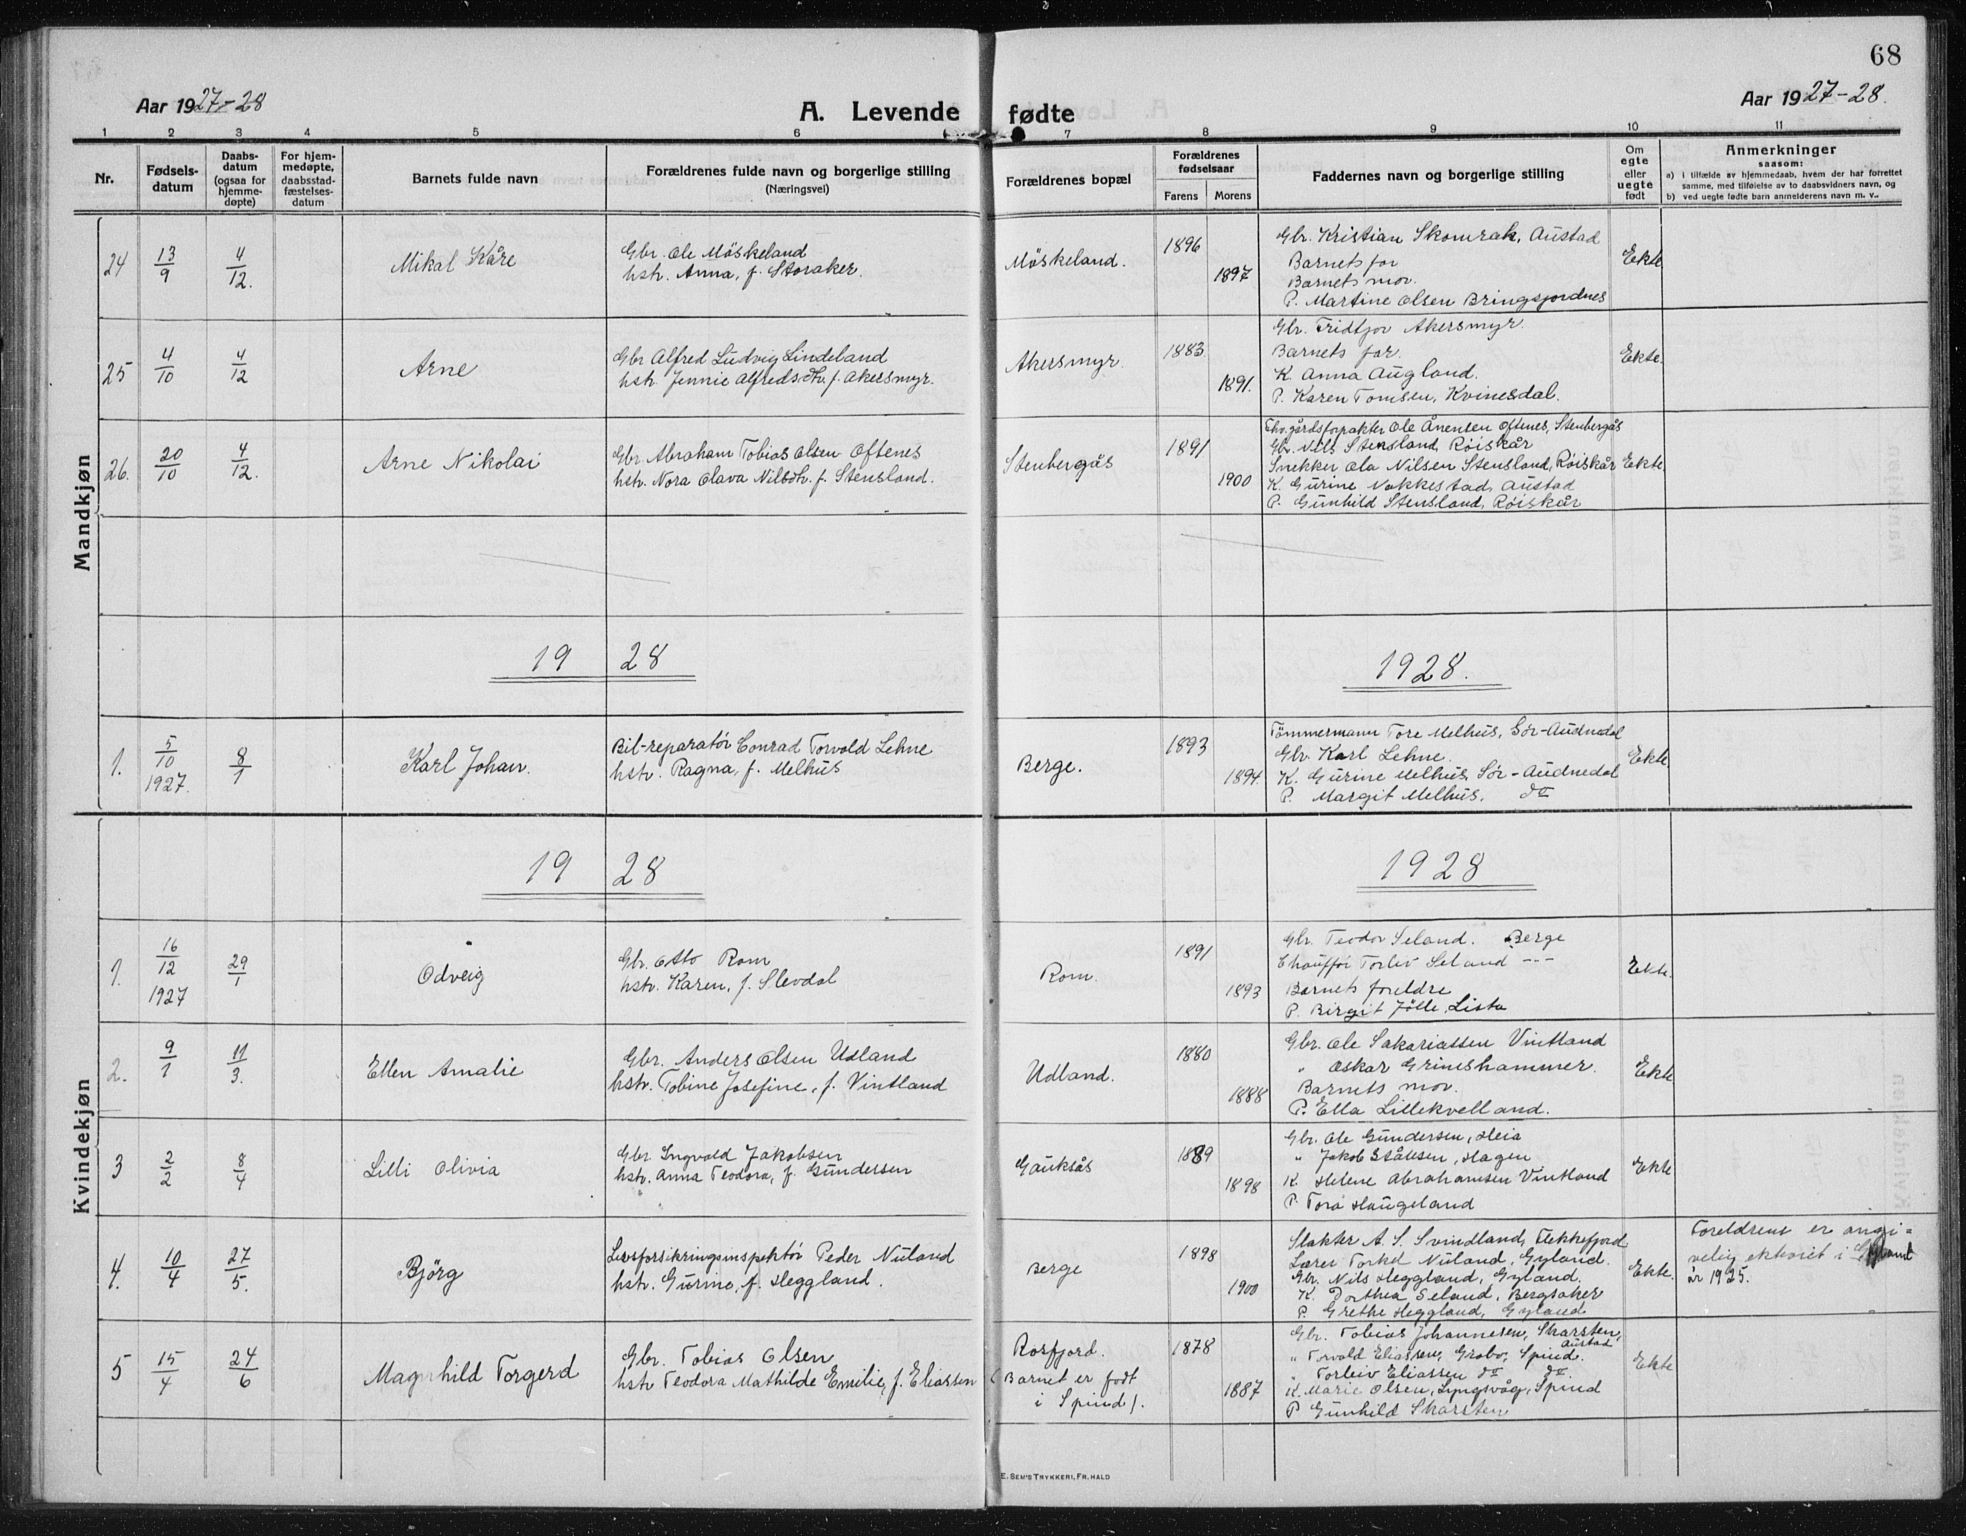 68
Aar 1927-28
A. Levende fødte
Aar 1927-28.
1 2 3 4 5 6 7 8 9 10 11
Nr.
Fødsels-
datum
Daabs-
datum
(ogsaa for
hjemme-
døpte)
For hjem-
medøpte,
daabsstad-
fæstelses-
datum
Barnets fulde navn
Forældrenes fulde navn og borgerlige stilling
(Næringsvei)
Forældrenes bopæl
Forældrenes
fødselsaar
Farens Morens
Faddernes navn og borgerlige stilling
Om
egte
eller
uegte
født
Anmerkninger
saasom:
a) i tilfælde av hjemmedaab, hvem der har forrettet
samme, med tilføielse av to daabsvidners navn, og
b) ved uegte fødte barn anmelderens navn m. v..
Mandkjøn
24 13/9 4/12. Mikal Kåre
Gbr. Ole Møskeland
hstr. Anna, f. Storaker.
Møskeland.
1896
1897
Gbr. Kristian Skomrak, Austad
Barnets far
Barnets mor.
P. Martine Olsen Bringsjordnes
Ekte
25 4/10 4/12 Arne
Gbr Alfred Ludvig Lindeland
hstr. Jennie Alfredsdtr. f. Akersmyr.
Akersmyr.
1883.
1891.
Gbr. Fridtjov Akersmyr.
Barnets far.
K. Anna Augland.
P. Karen Tomsen, Kvinesdal.
Ekte.
26. 20/10 4/12. Arne Nikolai
Gbr Abraham Tobias Olsen Oftenes
hstr. Nora Olava Nilsdtr. f. Stensland.
Stenbergås
1891
1900
Fhv. gårdsforpakter Ole Ånensen Oftenes, Stenbergås
Gbr. Nils Stensland, Røiskår
Snekker Ola Nilsen Stensland, Røiskår
K. Gurine Nakkestad, Austad
P. Gunhild Stensland, Røiskår
Ekte
19 28
1928.
1. 5/10 1927. 8/1 Karl Johan.
Bil-reparatør Conrad Torvald Lehne
hstr. Ragna, f. Melhus
Berge.
1893
1894.
Tømmermann Tore Melhus, Sør-Audnedal
Gbr. Karl Lehne.
K. Gurine Melhus, Sør-Audnedal
P. Margit Melhus. do
Ekte
Kvindekjøn
19 28
1928
1. 16/12 1927 29/1 Odveig
Gbr. Otto Rom
hstr. Karen, f. Slevdal
Rom.
1891
1893
Gbr. Teodor Seland. Berge
Chauffør Torleiv Seland ---
Barnets foreldre
P. Birgit Jølle, Lista
Ekte.
2. 9/1 11/3. Ellen Amalie
Gbr. Anders Olsen Udland
hstr. Tobine Josefine, f. Vintland
Udland.
1880
1888
Gbr. Ole Sakariassen Vintland
" Oskar Grimshammer.
Barnets mor.
P. Ella Lillekvelland.
Ekte
3 2/2 8/4 Lilli Olivia
Gbr Ingvald Jakobsen
hstr. Anna Teodora, f. Gundersen
Gauksås
1889
1898
Gbr. Ole Gundersen, Heia
" Jakob Stållsen, Hagen
K. Helene Abrahamsen Vintland
P. Tora Haugeland
Ekte
4. 10/4 27/5. Bjørg
Livsforsikringsinspektør Peder Nuland
hstr. Gurine, f. Heggland.
Berge
1898
1900
Slakter A. S. Svindland, Flekkefjord
Lærer Torkel Nuland, Gyland.
Gbr. Nils Heggland, Gyland.
K. Dorthea Seland, Bergsaker
P. Grethe Heggland, Gyland
Ekte.
Foreldrene er angi=
velig ektviet i
år 1925.
5 15/4 24/6 Magnhild Torgerd
Gbr. Tobias Olsen
hstr Teodora Mathilde Emilie, f. Eliassen
Rosfjord.
(Barnet er født
i Spind).
1878
1887
Gbr. Tobias Johannesen, Skarsten, Austad
" Torvald Eliassen, Grobo, Spind.
" Torleiv Eliassen do do.
K. Marie Olsen, Lyngsvåg, Spind
P Gunhild Skarsten
Ekte
E. SEM'S TRYKKERI, FR. HALD